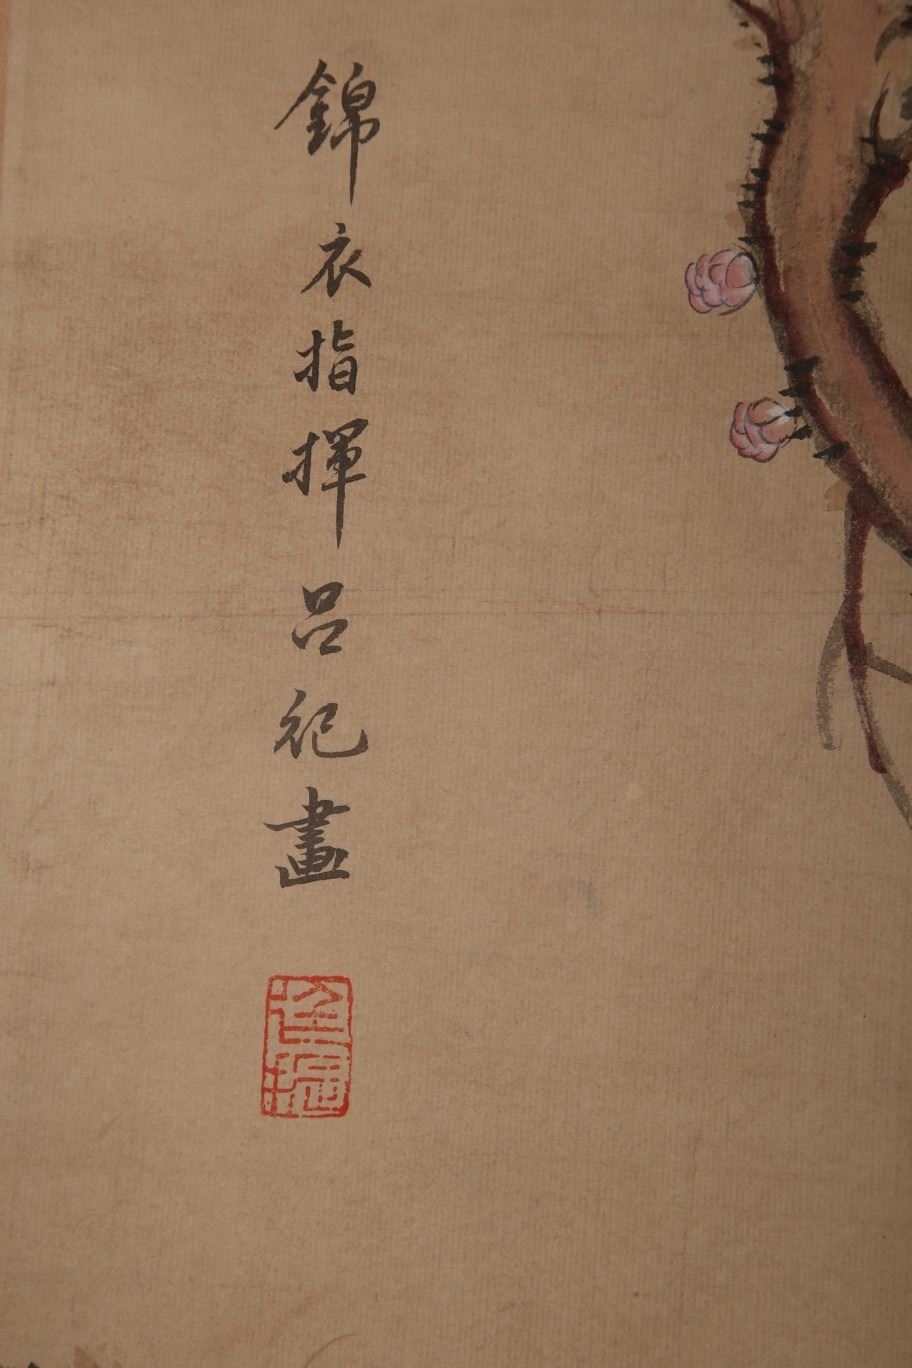 錦衣指揮呂祀畫